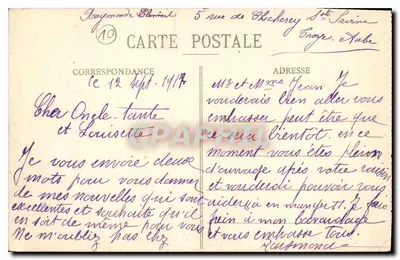 Raymonde 5 rue de Ste Savine
10
Troyes Aube
CARTE POSTALE
CORRESPONDANCE
le 12 Sept. 1917
Cher Oncle tante
et Louisette
Je vous envoie deux
mots pour vous donner
de mes nouvelles qui sont
excellentes et souhaite qu'il
en soit de même pour vous
Ne m'oubliez pas chez
ADRESSE
Mr et Mme Jean. Je
voudrais bien aller vous
embrasser peut être que
ce sera bientot. en ce
moment vous êtes pleins
d'ouvrage après votre raisin
et voudrais pouvoir vous
aider à en manger!!. Je
fein à mon bavardage
et vous embrasse tous.
Raymonde